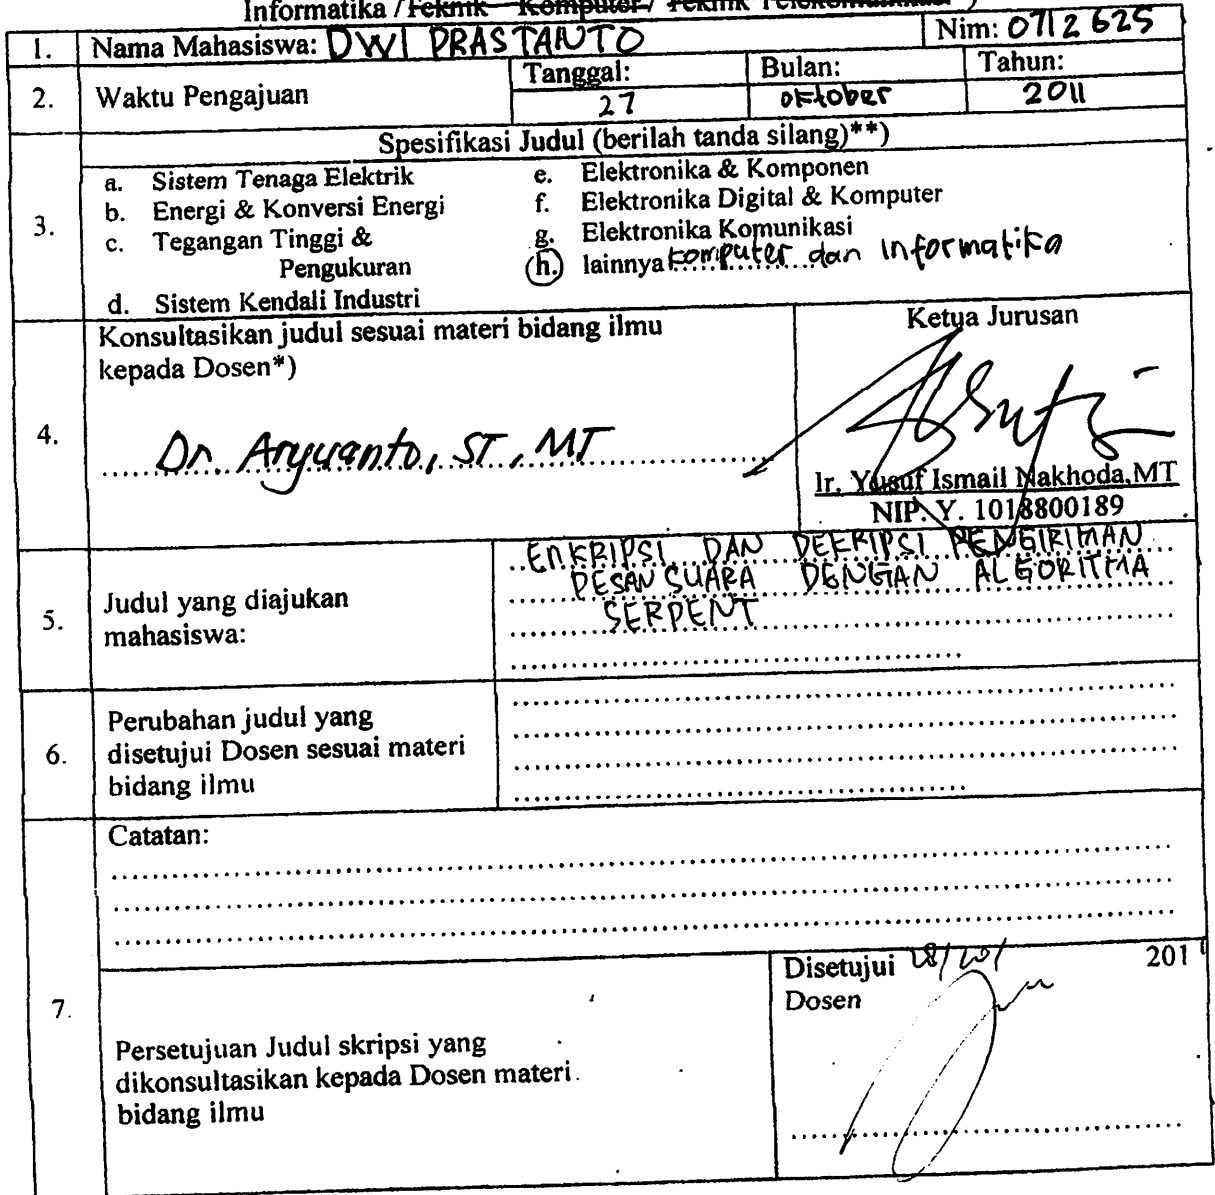 Informatika / Teknik Komputer / Teknik Telekomunikasi *)
1. Nama Mahasiswa: DWI PRASTANTO Nim: 0712625
2. Waktu Pengajuan Tanggal: Bulan: Tahun:
27 oktober 2011
Spesifikasi Judul (berilah tanda silang)**)
3.
a. Sistem Tenaga Elektrik
b. Energi & Konversi Energi
c. Tegangan Tinggi &
Pengukuran
d. Sistem Kendali Industri
e. Elektronika & Komponen
f. Elektronika Digital & Komputer
g. Elektronika Komunikasi
h. lainnya komputer dan informatika
4.
Konsultasikan judul sesuai materi bidang ilmu
kepada Dosen*)
Dr. Aryuanto, ST, MT
Ketua Jurusan
Ir. Yusuf Ismail Nakhoda,MT
NIP. Y. 1018800189
5. Judul yang diajukan
mahasiswa:
ENKRIPSI DAN DEKRIPSI PENGIRIMAN
PESAN SUARA DENGAN ALGORITMA
SERPENT
6. Perubahan judul yang
disetujui Dosen sesuai materi
bidang ilmu
7.
Catatan:
Persetujuan Judul skripsi yang
dikonsultasikan kepada Dosen materi
bidang ilmu
Disetujui 201
Dosen